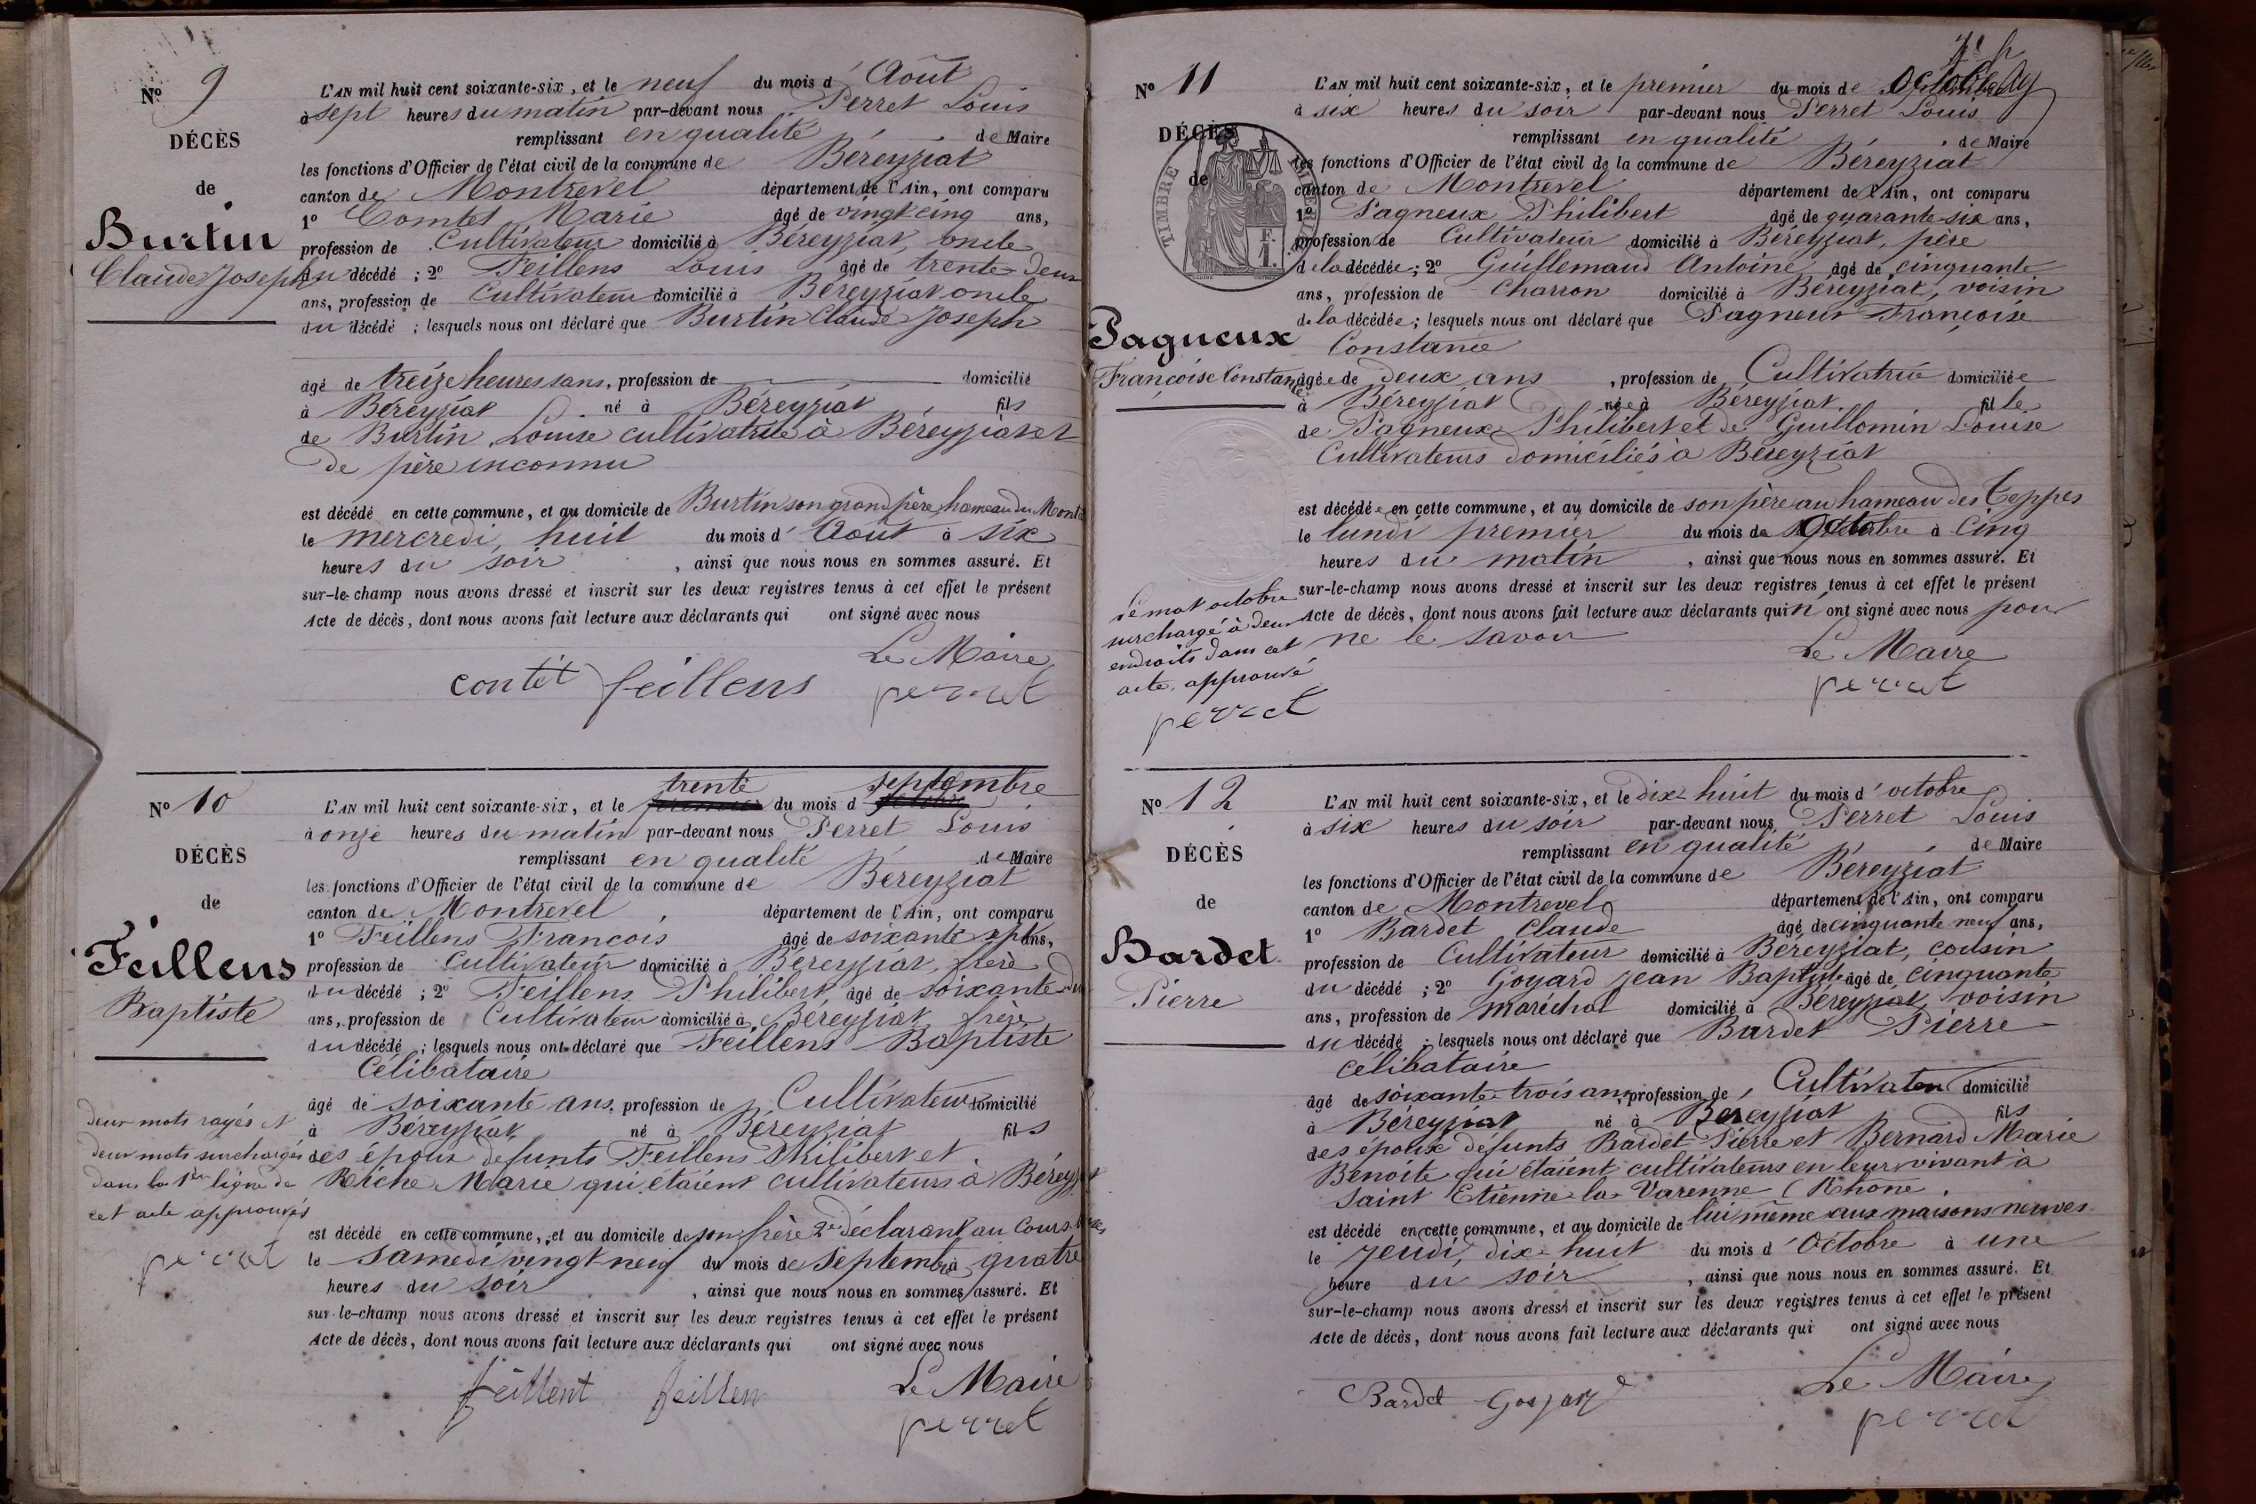 Nº 9
DÉCÈS
de
Burtin
Claude Joseph
L'AN mil huit cent soixante-six, et le neuf du mois d' Août
à sept heures du matin par-devant nous Perret Louis
remplissant en qualité de Maire
les fonctions d'Officier de l'état civil de la commune de Béreyziat
canton de Montrevel département de l'Ain, ont comparu
1º Comtet Marie âgé de vingt cinq ans,
profession de Cultivateur domicilié à Béreyziat, oncle
du décédé ; 2º Feillens Louis âgé de trente deux
ans, profession de Cultivateur domicilié à Béreyziat oncle
du décédé ; lesquels nous ont déclaré que Burtin Claude Joseph
âgé de treize heures ans, profession de domicilié
à Béreyziat né à Béreyziat fils
de Burtin Louise cultivatrice à Béreyziat et
de père inconnu
est décédé en cette commune, et au domicile de Burtin son grand père hameau du Monté
le mercredi, huit du mois d' Août à six
heures du soir, ainsi que nous nous en sommes assuré. Et
sur-le-champ nous avons dressé et inscrit sur les deux registres tenus à cet effet le présent
Acte de décès, dont nous avons fait lecture aux déclarants qui ont signé avec nous
Le Maire
contet feillens perret
Nº 10
DÉCÈS
de
Feillens
Baptiste
deux mots rayés et
deux mots surchargés
dans la 1ère ligne de
cet acte approuvés
perret
trente septembre
L'AN mil huit cent soixante-six, et le premier du mois d' octobre
à onze heures du matin par-devant nous Perret Louis
remplissant en qualité de Maire
les fonctions d'Officier de l'état civil de la commune de Béreyziat
canton de Montrevel, département de l'Ain, ont comparu
1º Feillens François âgé de soixante sept ans,
profession de Cultivateur domicilié à Béreyziat, frère
du décédé ; 2º Feillens Philibert âgé de soixante
ans, profession de Cultivateur domicilié à Béreyziat frère
du décédé ; lesquels nous ont déclaré que Feillens Baptiste
Célibataire
âgé de soixante ans, profession de Cultivateur domicilié
à Béreyziat né à Béreyziat fils
des époux défunts Feillens Philibert et
Riche Marie qui étaient cultivateurs à Béreyziat
est décédé en cette commune, et au domicile de son frère 2e déclarant au Cours
le samedi vingt neuf du mois de Septembre à quatre
heures du soir, ainsi que nous nous en sommes assuré. Et
sur-le-champ nous avons dressé et inscrit sur les deux registres tenus à cet effet le présent
Acte de décès, dont nous avons fait lecture aux déclarants qui ont signé avec nous
Le Maire
feillent feillen perret
Nº 11
DÉCÈS
de
TIMBRE
F.
1.
Pagneux
Françoise Constance
Le mot octobre
surchargé à deux
endroits dans cet
acte, approuvé
perret
L'AN mil huit cent soixante-six, et le premier du mois de Octobre
à six heures du soir par-devant nous Perret Louis
remplissant en qualité de Maire
les fonctions d'Officier de l'état civil de la commune de Béreyziat
canton de Montrevel département de l'Ain, ont comparu
1º Pagneux Philibert âgé de quarante-six ans,
profession de Cultivateur domicilié à Béreyziat, père
de la décédée ; 2º Guillemaud Antoine âgé de cinquante
ans, profession de Charron domicilié à Béreyziat, voisin
de la décédée ; lesquels nous ont déclaré que Pagneux Françoise
Constance
âgée de deux ans, profession de Cultivatrice domiciliée
à Béreyziat née à Béreyziat fille
de Pagneux Philibert et de Guillomin Louise
Cultivateurs domiciliés à Béreyziat
est décédée en cette commune, et au domicile de son père au hameau des Teppes
le lundi premier du mois de Octobre à Cinq
heures du matin, ainsi que nous nous en sommes assuré. Et
sur-le-champ nous avons dressé et inscrit sur les deux registres tenus à cet effet le présent
Acte de décès, dont nous avons fait lecture aux déclarants qui n'ont signé avec nous pour
ne le savoir
Le Maire
perret
Nº 12
DÉCÈS
de
Bardet
Pierre
L'AN mil huit cent soixante-six, et le dix-huit du mois d' octobre
à six heures du soir par-devant nous Perret Louis
remplissant en qualité de Maire
les fonctions d'Officier de l'état civil de la commune de Béreyziat
canton de Montrevel département de l'Ain, ont comparu
1º Bardet Claude âgé de cinquante neuf ans,
profession de Cultivateur domicilié à Béreyziat, cousin
du décédé ; 2º Goyard jean Baptiste âgé de cinquante
ans, profession de maréchal domicilié à Béreyziat, voisin
du décédé ; lesquels nous ont déclaré que Bardet Pierre
célibataire
âgé de soixante-trois ans profession de Cultivateur domicilié
à Béreyziat né à Béreyziat fils
des époux défunts Bardet Pierre et Bernard Marie
Benoite qui étaient cultivateurs en leur vivant à
Saint Etienne la Varenne (Rhône.
est décédé en cette commune, et au domicile de lui même aux maisons neuves
le jeudi, dix-huit du mois d' Octobre à une
heure du soir, ainsi que nous nous en sommes assuré. Et
sur-le-champ nous avons dressé et inscrit sur les deux registres tenus à cet effet le présent
Acte de décès, dont nous avons fait lecture aux déclarants qui ont signé avec nous
Le Maire
Bardet Goyard perret